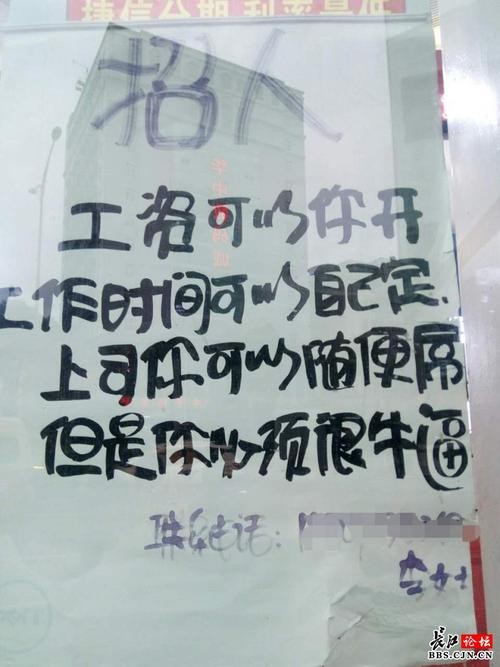 捷信分期 利率最低
招人
工资可以你开
工作时间可以自己定.
上司你可以随便屌
但是你必须很牛逼
联系电话：
李女士
长江论坛
BBS.CJN.CN